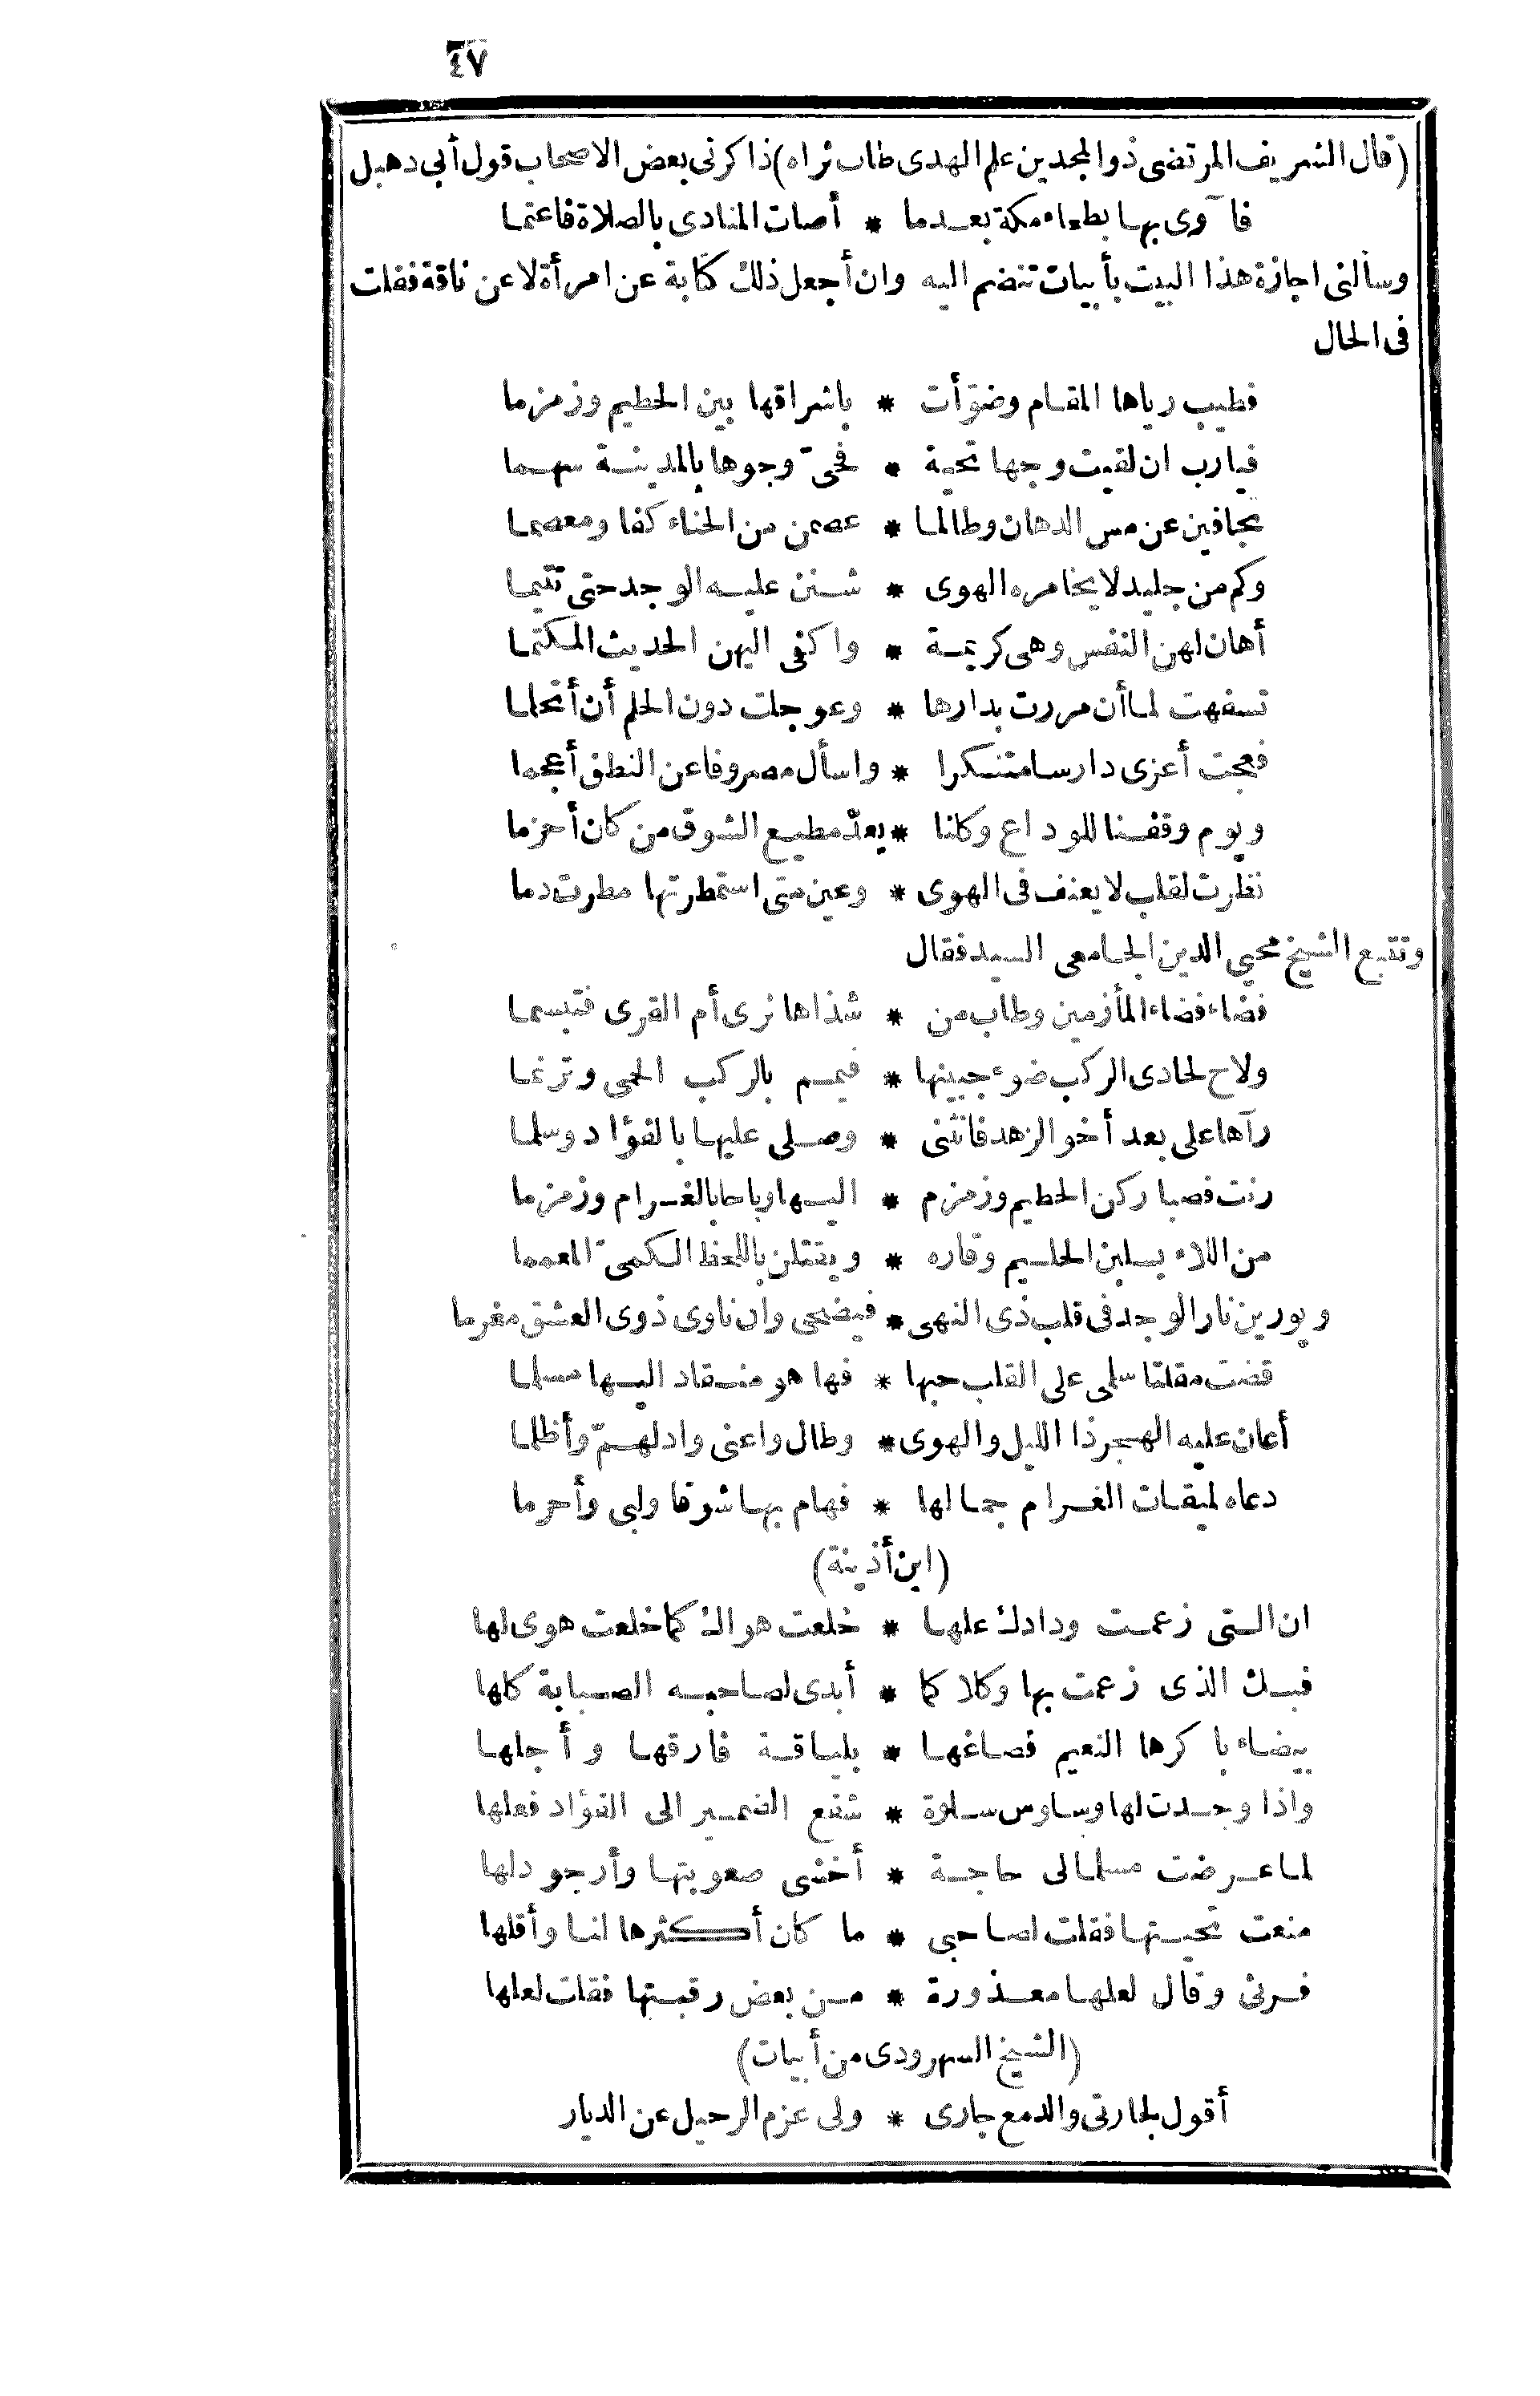 ٤٧
(قال الشريف المرتضى ذوالمجدين علم الهدى طاب ثراه) ذاكرنى بعض الاصحاب قول أبى دهبل
فآوى بها بطحاء مكة بعدما * أصات المنادى بالصلاة فاعتما
وسألنى اجازة هذا البيت بأبيات تنضم اليه وان أجعل ذلك كتابة عن امرأة لا عن ناقة فقلت
فى الحال
فطيب رياها المقام وضوّأت * باشراقها بين الحطيم وزمزما
فيارب ان لقيت وجها تحية * فحىّ وجوها بالمدينة سهما
تجافين عن مس الدهان وطالما * عصمن من الحناء كفا ومعصما
وكم من جليد لا يخامره الهوى * شنن عليه الوجد حتى تتيما
أهان لهن النفس وهى كريمة * واكفى اليهن الحديث المكتما
تسفهت لما أن مررت بدارها * وعوجلت دون الحلم أن أتحلما
فعجت أعزى دارسا متنكرا * واسأل مصروفا عن النطق أعجما
ويوم وقفنا للوداع وكلنا * يعدّ مطيع الشوق من كان أحزما
نظرت لقلب لا يعنف فى الهوى * وعين متى استمطرتها مطرت دما
وتتبع الشيخ محيي الدين الجامعى السيد فقال
فضاء فضاء المأزمين وطاب من * شذاها ثرى أم القرى فتبسما
ولاح لحادى الركب ضوء جبينها * فيمم بالركب الحمى وترنما
رآها على بعد أخو الزهد فانثنى * وصلى عليها بالفؤاد وسلما
رنت فصبا ركن الحطيم وزمزم * اليها وباحا بالغرام وزمزما
من اللاء يسلبن الحليم وقاره * ويقتلن باللحظ الكمىّ المعمما
ويورين نار الوجد فى قلب ذى النهى * فيضحى وان ناوى ذوى العشق مغرما
قضت مقلتا سلمى على القلب حبها * فها هو منقاد اليها مسلما
أعان عليه الهجر ذا الليل والهوى * وطال واعنى وادلهمّ وأظلما
دعاه لميقات الغرام جمالها * فهام بها شوقا ولبى وأحرما
(ابن أذينة)
ان التى زعمت ودادك علها * خلعت هواك كما خلعت هوى لها
فبك الذى زعمت بها وكلاكما * أبدى لصاحبه الصبابة كلها
بيضاء باكرها النعيم فصاغها * بلباقة فارقها وأجلها
واذا وجدت لها وساوس سلوة * شفع الضمير الى الفؤاد فعلها
لما عرضت مسلما لى حاجة * أخشى صعوبتها وأرجو دلها
منعت تحيتها فقلت لصاحبى * ما كان أكثرها لنا وأقلها
فرنى وقال لعلها معذورة * من بعض رقبتها فقلت لعلها
(الشيخ السهرودى من أبيات)
أقول لجارتى والدمع جارى * ولى عزم الرحيل عن الديار